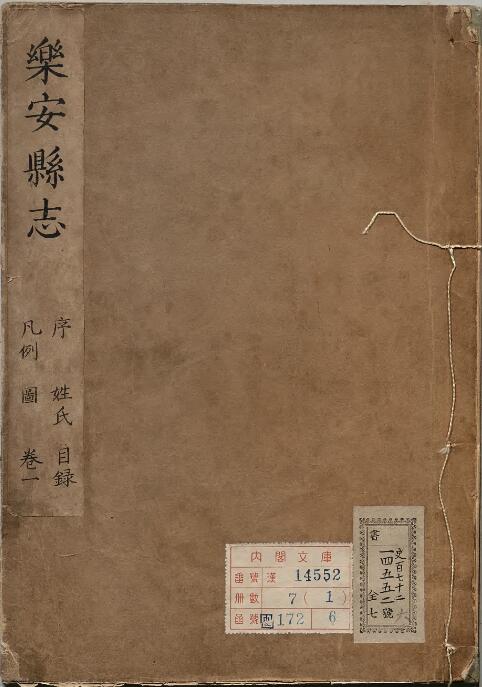 樂安縣志
序 姓氏 目録
凡例 圖 卷一
内閣文庫
番號 漢 14552
册數 7 (1)
函號 172 6
書
史百七十二
一四五五二號
全七